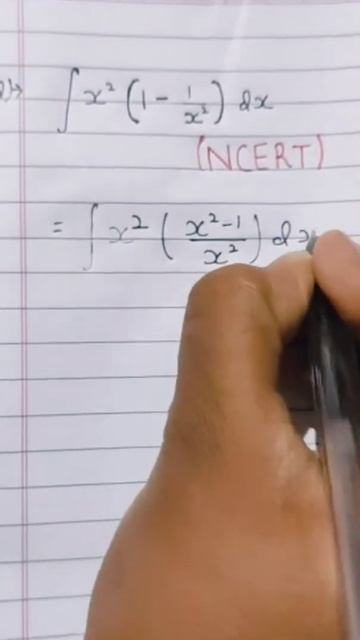 ∫ x² (1 - 1/x²) dx
(NCERT)
= ∫ x² (x²-1/x²) dx